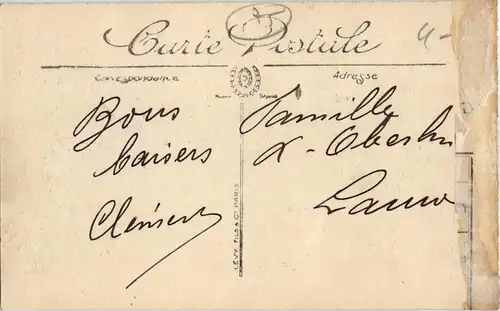 Carte Postale
Correspondance
Adresse
Bons
baisers
Clément
Famille
X. Oberlin
Lauw
LEVY FILS & Cie PARIS